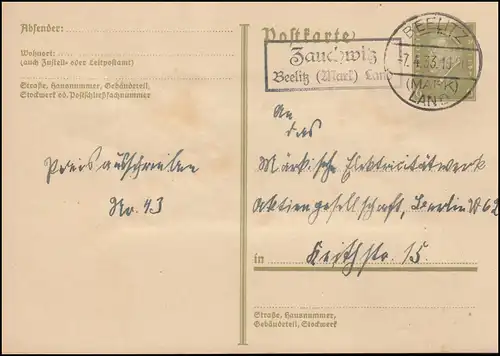 Absender:
Wohnort:
(auch Zustell- oder Leitpostamt)
Straße, Hausnummer, Gebäudeteil,
Stockwerk od. Postschließfachnummer
Preisausschreiben
No. 43
Postkarte
Zauchwitz
Beelitz (Mark) Land
BEELITZ
-7.4.33.
(MARK)
LAND
An
das
Märkische Elektricitätwerk
Aktiengesellschaft, Berlin W62
in Keithstr. 15.
Straße, Hausnummer,
Gebäudeteil, Stockwerk